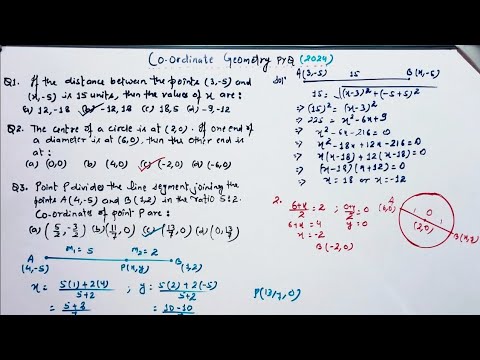 Co-ordinate Geometry PYQ (2024)
Q1. If the distance between the points (3,-5) and
(x,-5) is 15 units, then the values of x are:
(a) 12,-18 (b) -12,18 (c) 18,5 (d) -9,-12
Q2. The centre of a circle is at (2,0). If one end of
a diameter is at (6,0), then the other end is
at:
(a) (0,0) (b) (4,0) (c) (-2,0) (d) (-6,0)
Q3. Point P divides the line segment joining the
points A(4,-5) and B(1,2) in the ratio 5:2.
Co-ordinate of point P are:
(a) (5/2, -3/2) (b) (11/7, 0) (c) (13/7, 0) (d) (0, 13/7)
m₁ = 5 m₂ = 2
A P(x,y) B
(4,-5) (1,2)
x = 5(1)+2(4)/5+2 ; y = 5(2)+2(-5)/5+2
= 5+8/7 = 10-10/7
P(13/7, 0)
A(3,-5) 15 B(x,-5)
15 = √(x-3)²+(-5+5)²
⇒ (15)² = (x-3)²
⇒ 225 = x²-6x+9
⇒ x²-6x-216=0
⇒ x²-18x+12x-216=0
⇒ x(x-18)+12(x-18)=0
⇒ (x-18)(x+12)=0
⇒ x = 18 or x = -12
2. 6+x/2 = 2 ; 0+y/2 = 0
6+x = 4 y = 0
x = -2
B(-2,0)
A
(6,0)
O
(2,0)
B(x,y)